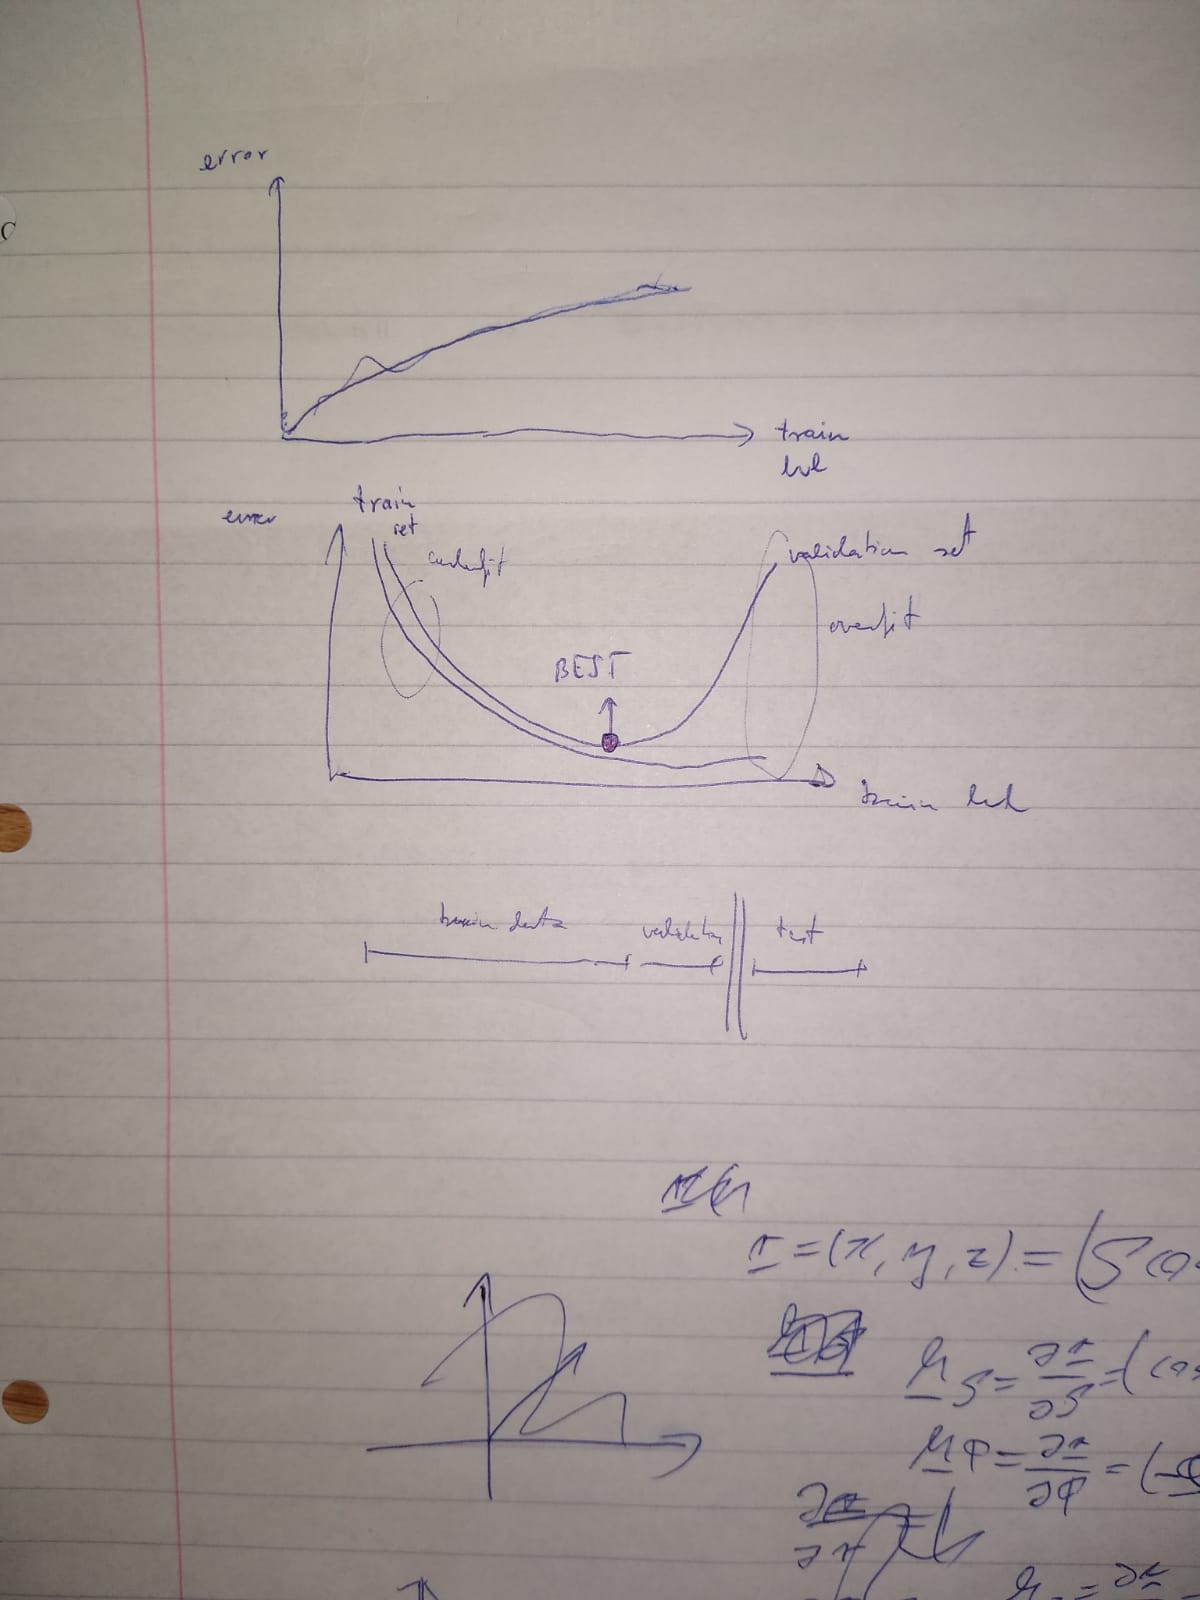 error
train
lvl
error
train
set
underfit
validation set
overfit
BEST
train lvl
train data
validation
test
r = (x, y, z) = (S co
S = ∂r/∂S = (cos
φ = ∂r/∂φ = (-